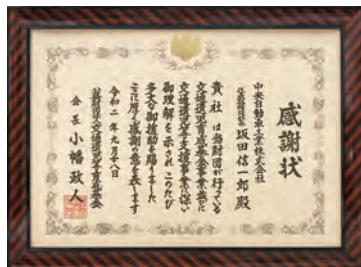 感謝状
中央自動車工業株式会社
代表取締役社長 坂田信一郎 殿
貴社は当財団が行っている
交通遺児育成基金事業並に
交通遺児等支援事業に深い
御理解を示され このたび
多大な御援助を賜りました
ここに厚く感謝の意を表します
令和二年九月十八日
公益財団法人交通遺児等育成基金
会長 小幡政人